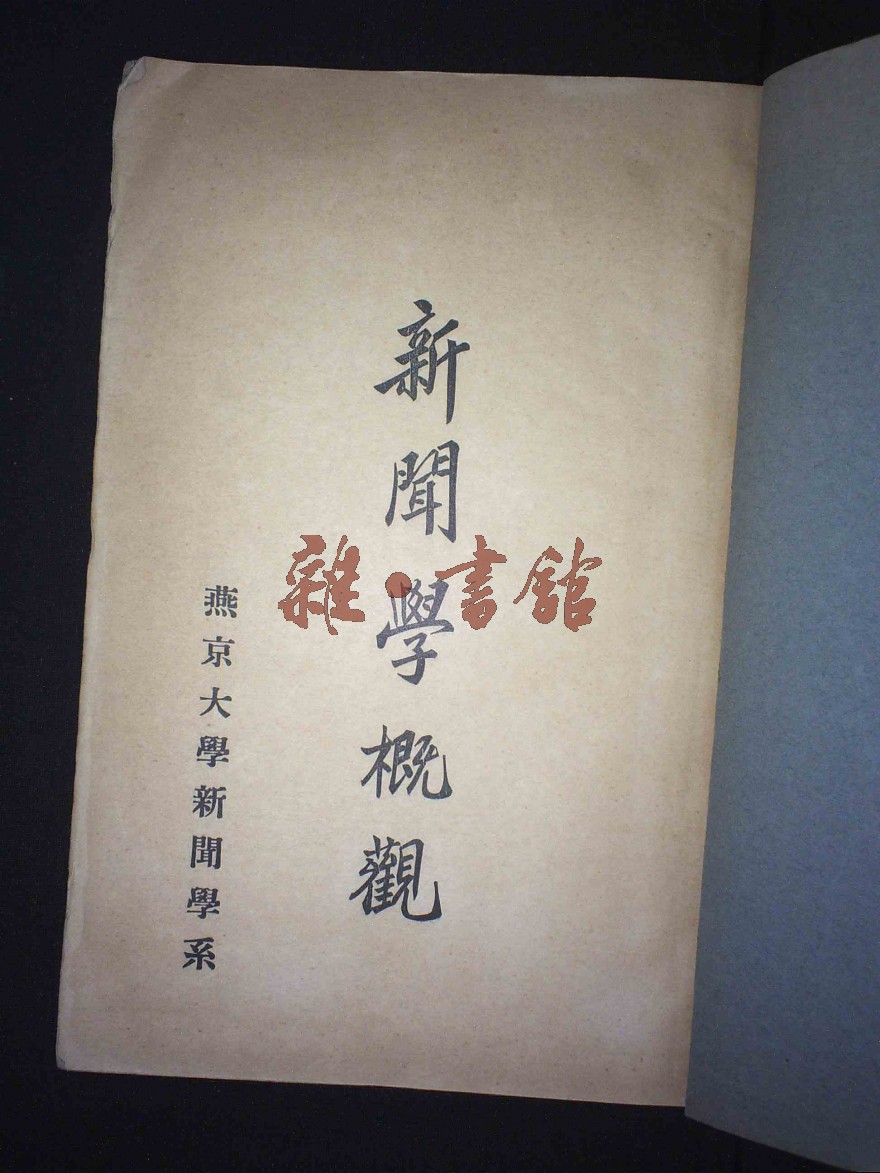 新聞學概觀
燕京大學新聞學系
雜·書館